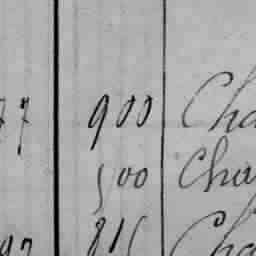 77 900 Cha
500 Cha
97 815 Cha